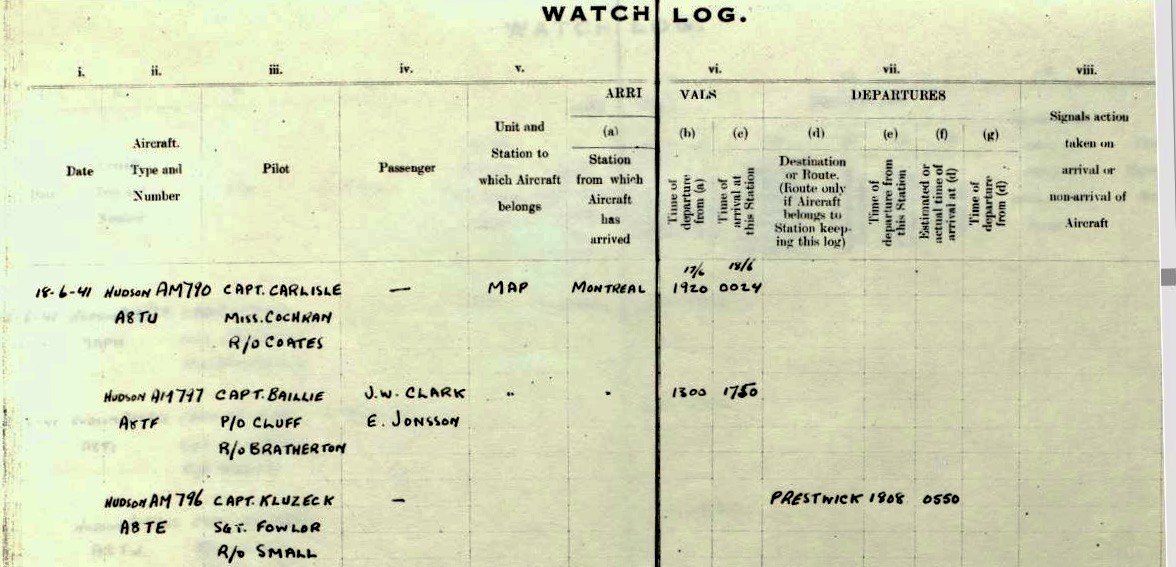 WATCH LOG.
i. ii. iii. iv. v. vi. vii. viii.
ARRI VALS DEPARTURES
Date
Aircraft. Type and Number
Pilot
Passenger
Unit and Station to which Aircraft belongs
(a) Station from which Aircraft has arrived
(b) Time of departure from (a)
(c) Time of arrival at this Station
(d) Destination or Route. (Route only if Aircraft belongs to Station keep-ing this log)
(e) Time of departure from this Station
(f) Estimated or actual time of arrival at (d)
(g) Time of departure from (d)
Signals action taken on arrival or non-arrival of Aircraft
17/6 18/6
18-6-41 HUDSON AM790 CAPT. CARLISLE — MAP MONTREAL 1920 0024
A8TU MISS. COCHRAN
R/O COATES
HUDSON AM797 CAPT. BAILLIE J.W. CLARK " " 1300 1750
A8TF P/O CLUFF E. JONSSON
R/O BRATHERTON
HUDSON AM 796 CAPT. KLUZECK — PRESTWICK 1808 0550
A8TE SGT. FOWLOR
R/O SMALL